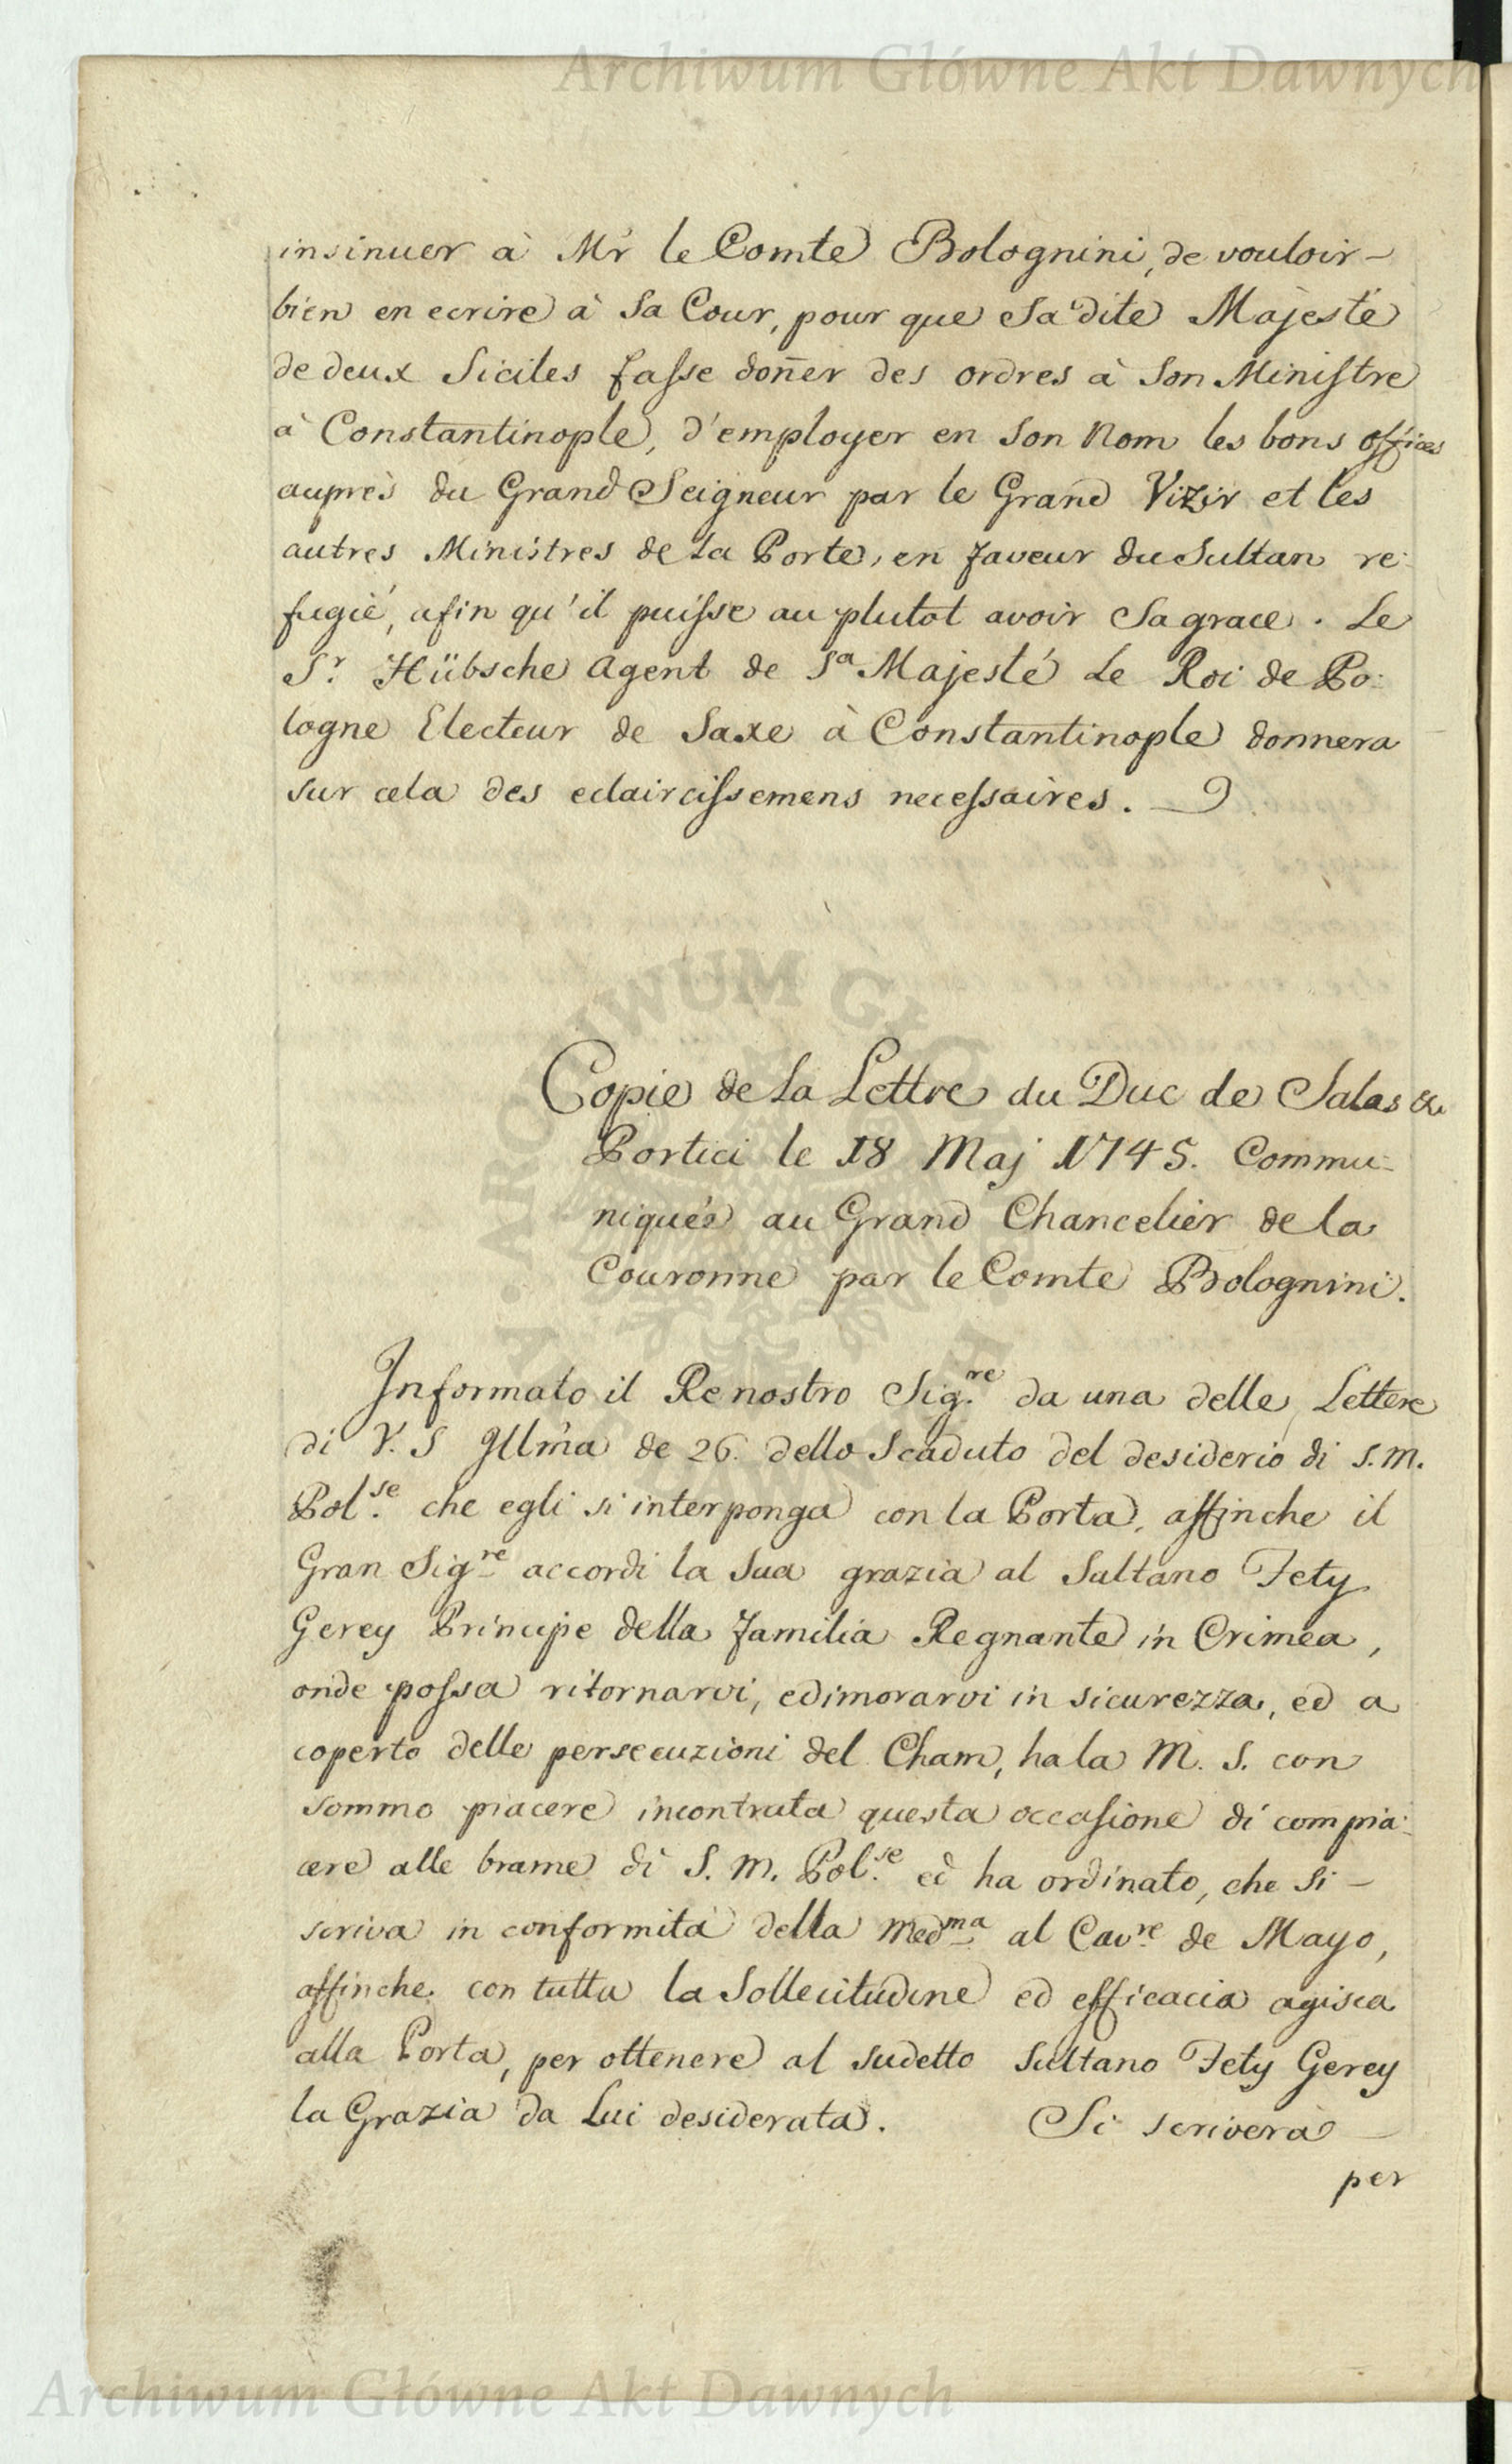 Archiwum Główne Akt Dawnych
insinuer à Mr le Comte Bolognini, de vouloir-
bien en ecrire à Sa Cour, pour que Sa dite Majesté
de deux Siciles fasse doñer des ordres à Son Ministre
à Constantinople, d'employer en Son Nom les bons offices
auprès du Grand Seigneur par le Grand Vizir et les
autres Ministres de la Porte, en faveur du Sultan re:
fugié, afin qu'il puisse au plutot avoir Sa grace. Le
Sr. Hübsche Agent de Sa Majesté Le Roi de Po:
logne Electeur de Saxe à Constantinople donnera
sur cela des eclaircissemens necessaires.
Copie de la Lettre du Duc de Salas &
Portici le 18 Maj 1745. Commu:
niquée au Grand Chancelier de la
Couronne par le Comte Bolognini.
Informato il Re nostro Sig.re da una delle Lettere
di V. S Illm̃a de 26. dello Scaduto del desiderio di S. M.
Pol.se che egli si interponga con la Porta, affinche il
Gran Sig.re accordi la Sua grazia al Sultano Fety
Gerey Principe della Familia Regnante in Crimea,
onde possa ritornarvi, edimorarvi in sicurezza, ed a
coperto delle persecuzioni del Cham, ha la M. S. con
sommo piacere incontrata questa occasione di compia:
cere alle brame di S. M. Pol.se ed ha ordinato, che Si-
scriva in conformità della Medma al Cavre de Mayo,
affinche con tutta la Sollecitudine ed efficacia agisca
alla Porta, per ottenere al sudetto Sultano Fety Gerey
la Grazia da Lui desiderata. Si scriverà
per
Archiwum Główne Akt Dawnych